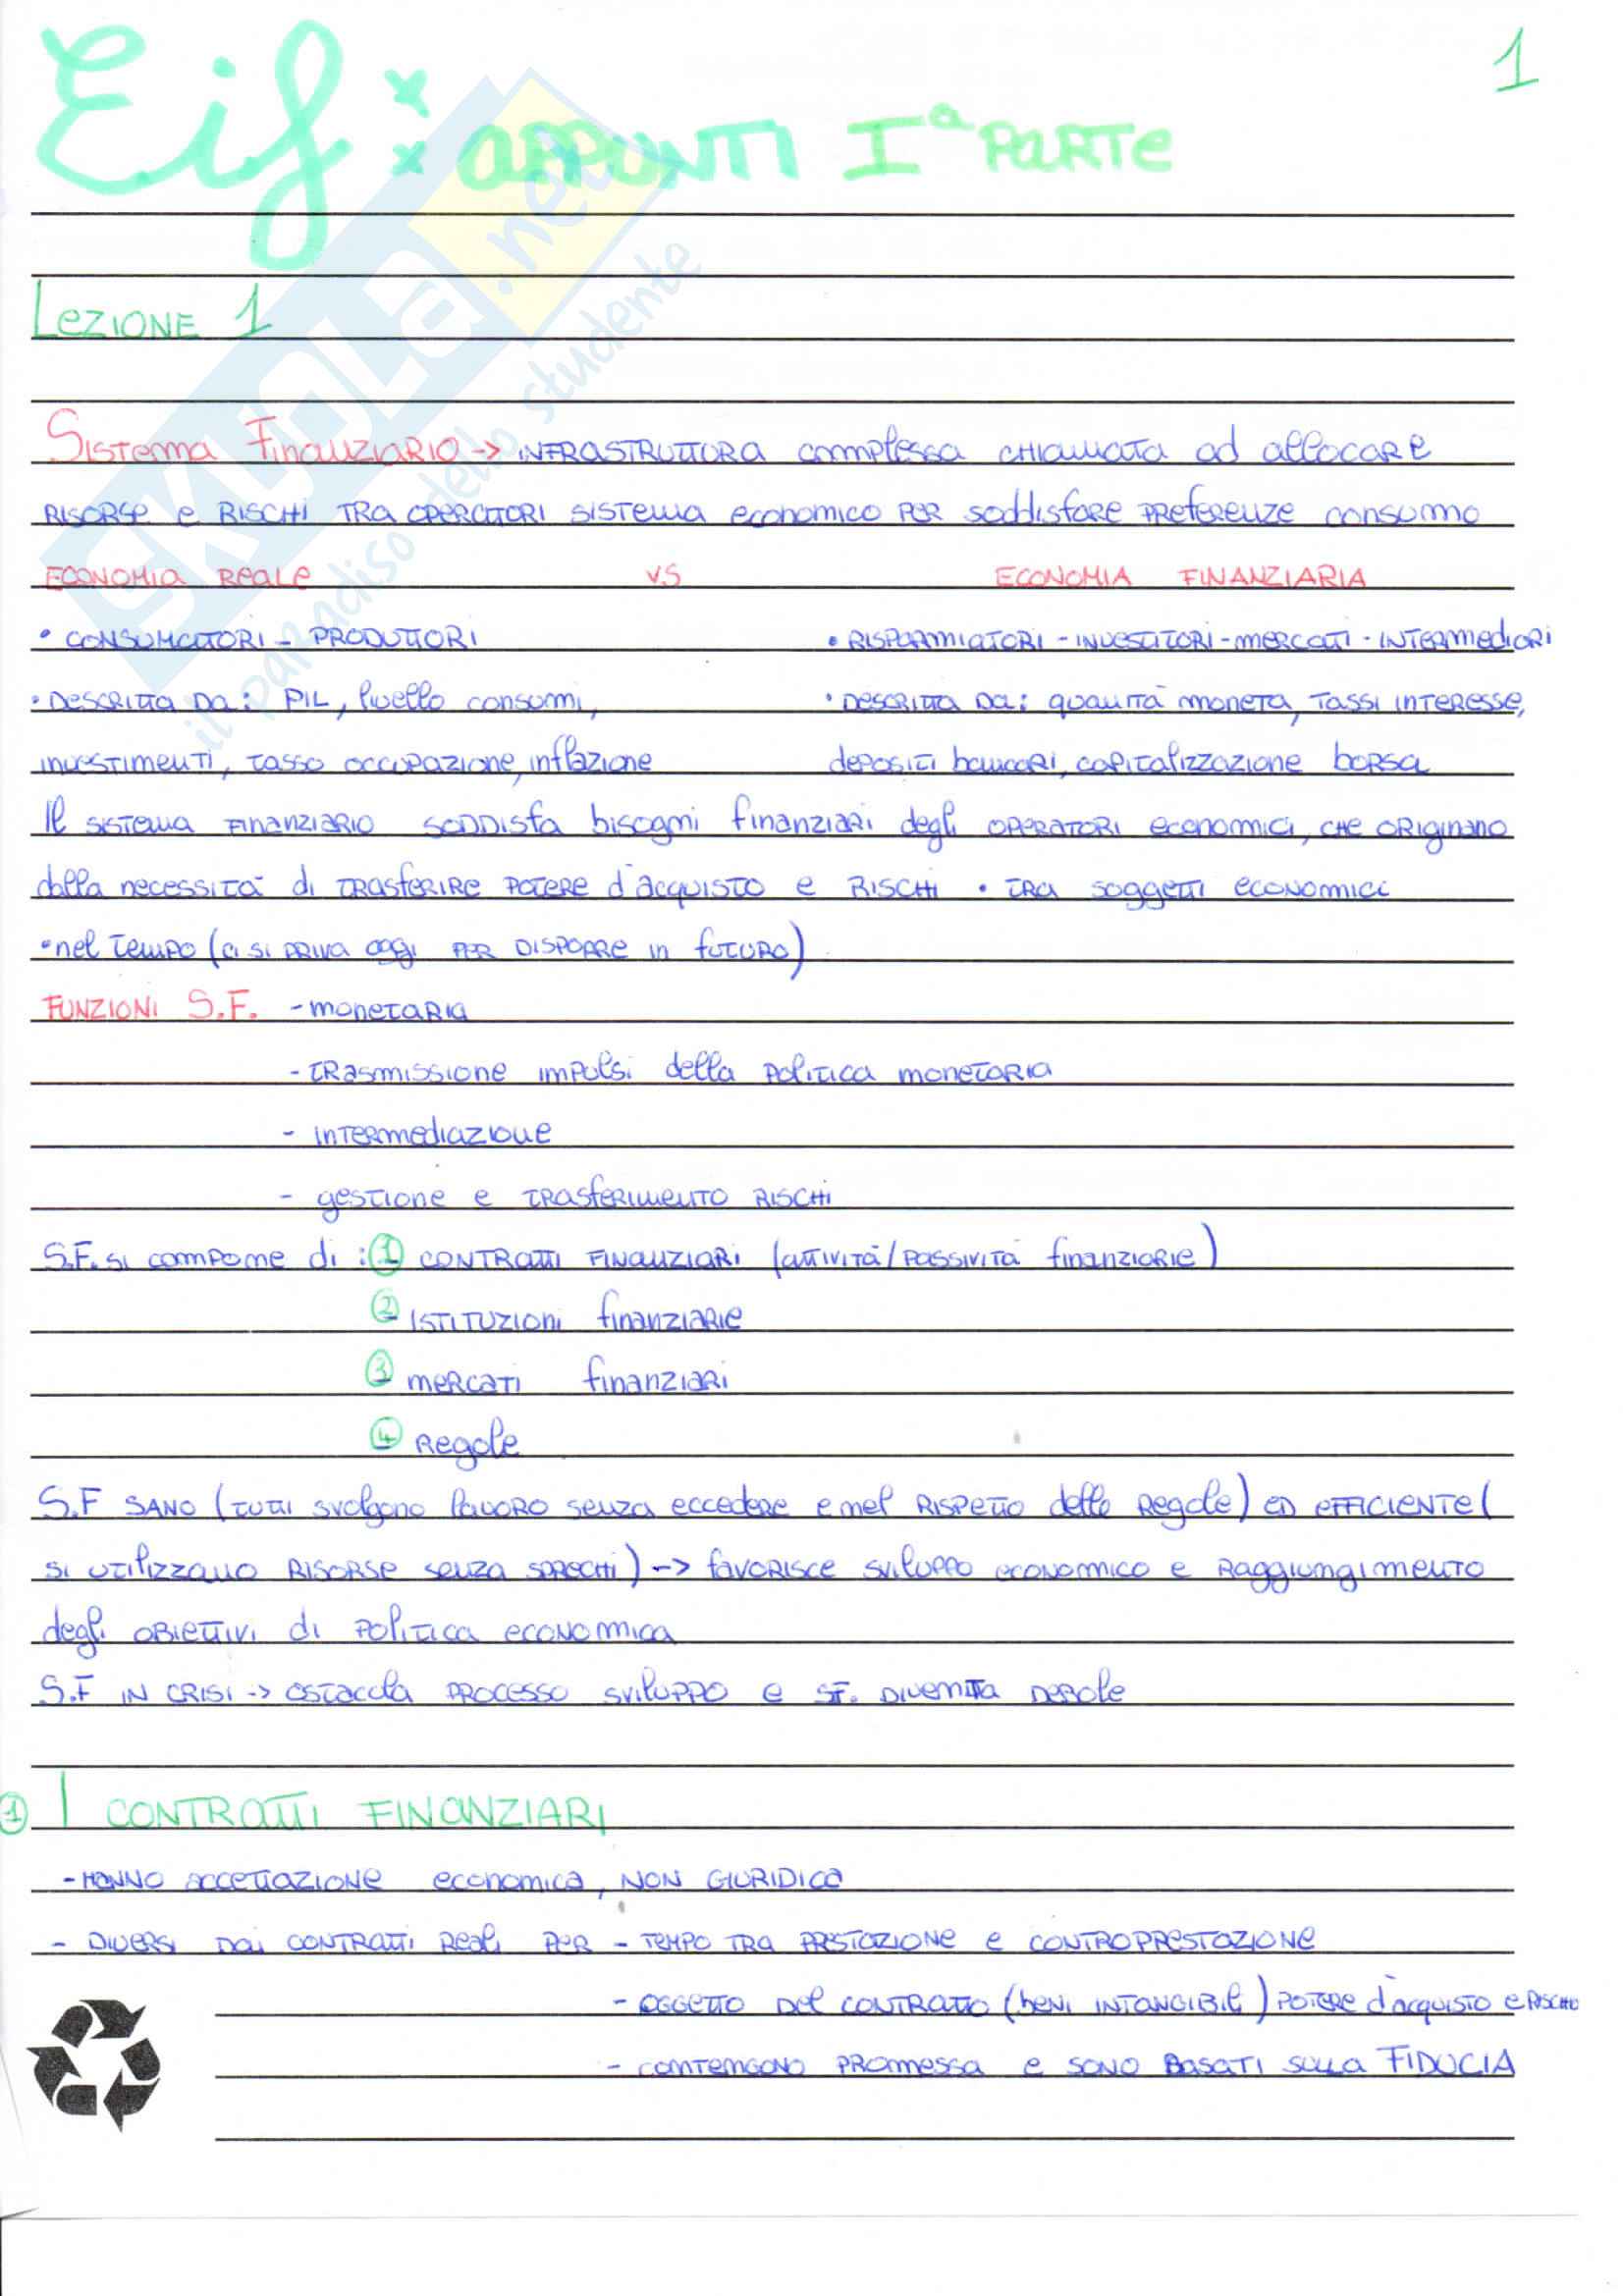 Eif: APPUNTI Iª PARTE
1
LEZIONE 1
SISTEMA FINANZIARIO -> INFRASTRUTTURA complessa CHIAMATA ad allocare
RISORSE e RISCHI TRA OPERATORI SISTEMA economico PER soddisfare PREFERENZE consumo
ECONOMIA REALE VS ECONOMIA FINANZIARIA
• CONSUMATORI - PRODUTTORI • RISPARMIATORI - INVESTITORI - MERCATI - INTERMEDIARI
• DESCRITTA DA: PIL, livello consumi, • DESCRITTA DA: quantità moneta, TASSI INTERESSE,
INVESTIMENTI, TASSO OCCUPAZIONE, inflazione depositi bancari, capitalizzazione borsa
Il SISTEMA FINANZIARIO SODDISFA bisogni finanziari degli OPERATORI economici, CHE ORIGINANO
dalla necessità di TRASFERIRE POTERE d'acquisto e RISCHI • TRA soggetti economici
• nel tempo (ci si PRIVA oggi PER DISPORRE in futuro)
FUNZIONI S.F. - monetaria
- TRASMISSIONE IMPULSI della politica monetaria
- INTERMEDIAZIONE
- gestione e TRASFERIMENTO RISCHI
S.F. si compone di: 1 CONTRATTI FINANZIARI (attività/passività finanziarie)
2 ISTITUZIONI finanziarie
3 mercati finanziari
4 Regole
S.F SANO (tutti svolgono lavoro senza eccedere e nel RISPETTO delle Regole) ED EFFICIENTE (
si utilizzano RISORSE senza sprechi) --> favorisce sviluppo economico e Raggiungimento
degli obiettivi di politica economica
S.F IN CRISI -> ostacola PROCESSO SVILUPPO e SF. DIVENTA DEBOLE
1 I CONTRATTI FINANZIARI
- HANNO accettazione economica, NON GIURIDICA
- DIVERSI DAI CONTRATTI Reali PER - TEMPO TRA PRSTAZIONE e CONTROPRESTAZIONE
- OGGETTO DEL CONTRATTO (beni INTANGIBILI) POTERE d'acquisto e RISCHIO
- CONTENGONO PROMESSA e SONO BASATI SULLA FIDUCIA
SKUOLA.net
il paradiso dello studente